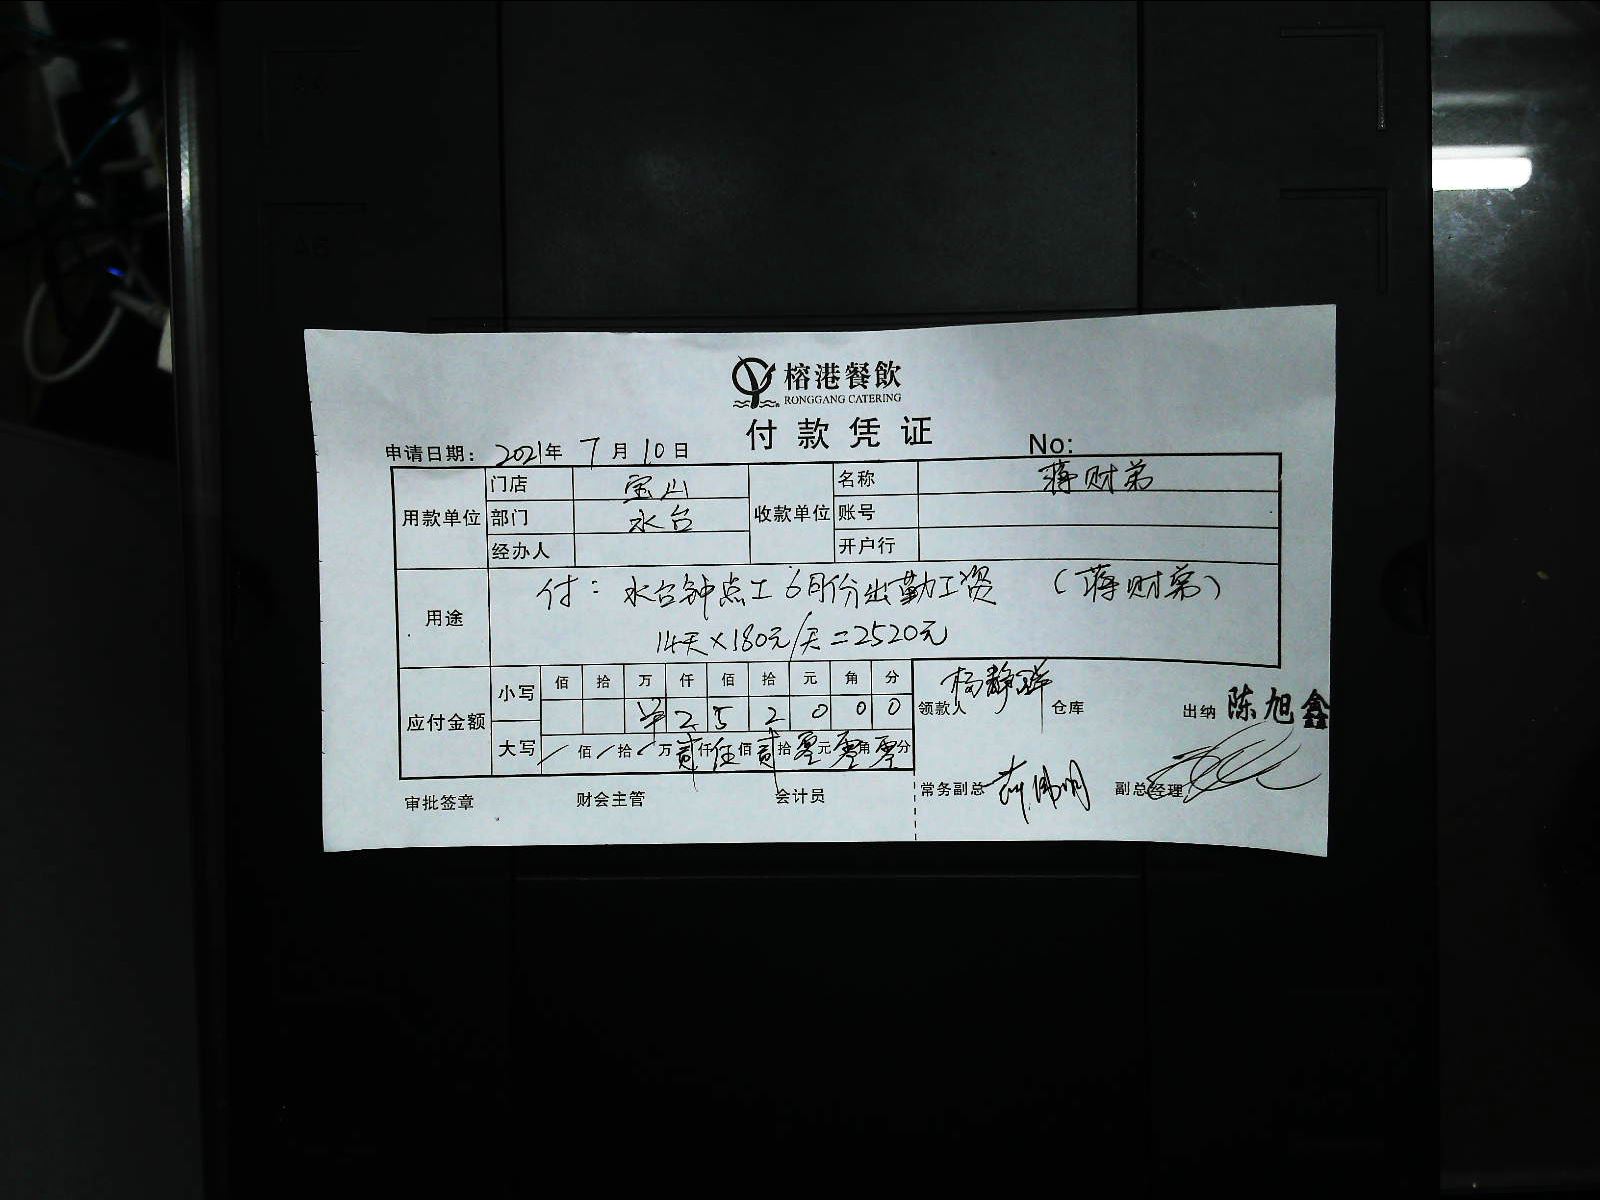 榕港餐飲
RONGGANG CATERING
付款凭证
申请日期：2021年7月10日 No:
用款单位 门店 宝山 收款单位 名称 蒋财弟
部门 水台 账号
经办人 开户行
用途 付：水台钟点工6月份出勤工资（蒋财弟）
14天×180元/天=2520元
应付金额 小写 佰 拾 万 仟 佰 拾 元 角 分
2 5 2 0 0 0
大写 / 佰 / 拾 / 万 贰仟伍佰贰拾零元零角零分
领款人 杨静 仓库 出纳 陈旭鑫
审批签章 财会主管 会计员 常务副总 副总经理